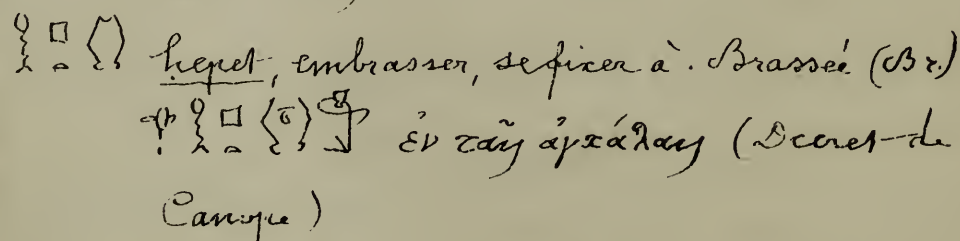 𓎛𓊪𓏏𓂘 hepet, embrasser, se fixer à. Brassée (Br.)
ἐν ταῖς ἀγκάλαις (Decret de
Canope)